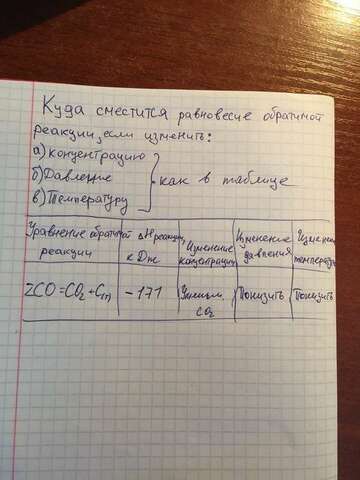 Куда сместится равновесие обратимой
реакции, если изменить:
а) концентрацию
б) Давление
в) Температуру
как в таблице
Уравнение обратимой реакции
ΔH реакции, кДж
Изменение концентрации
Изменение давления
температуры
2CO=CO₂+C(т)
-171
Уменьш. CO₂
Понизить
Понизить